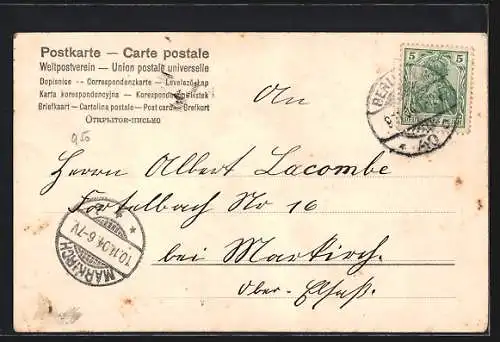 Postkarte — Carte postale
Weltpostverein — Union postale universelle
Dopisnice — Correspondenzkarte — Levelező-Lap
Karta korespondencyjna — Korespondenční lístek
Briefkaart — Cartolina postale — Post card — Brefkort
Открытое письмо
An
950
5 5
BERLIN
Herrn Albert Lacombe
Fortelbach No 16
bei Markirch
Ober-Elsaß.
MARKIRCH
10.11.04. 6-7V.